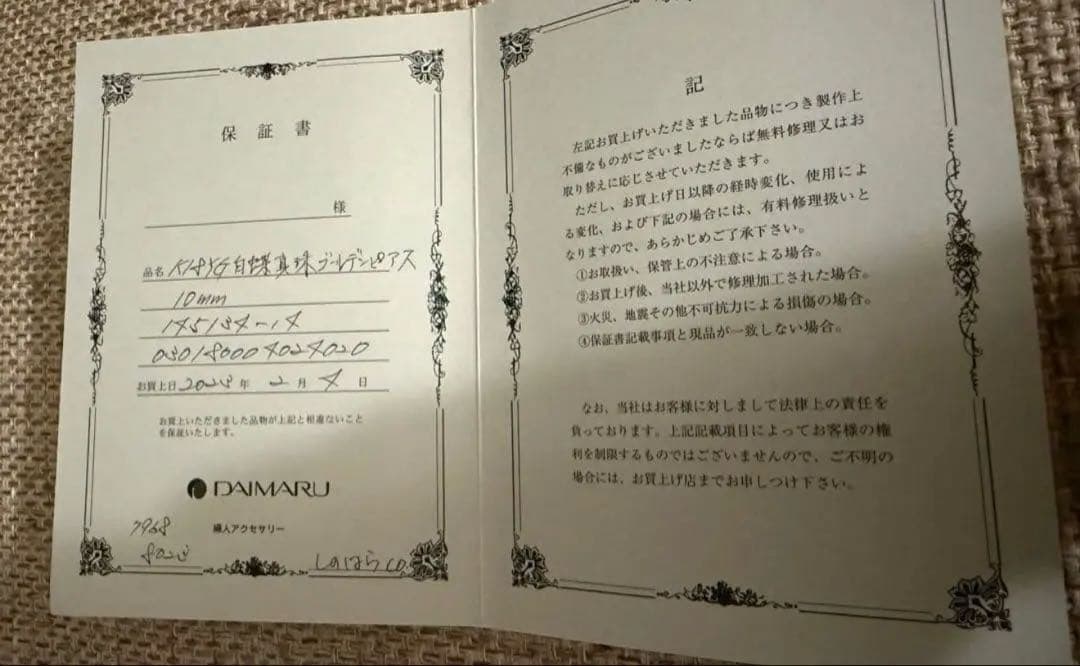 保証書
様
品名 K18YG白蝶真珠ゴールデンピアス
10mm
145134-14
お買上日 2023年 2月 4日
お買上いただきました品物が上記と相違ないこと
を保証いたします。
DAIMARU
婦人アクセサリー
しのはら
記
左記お買上げいただきました品物につき製作上
不備なものがございましたならば無料修理又はお
取り替えに応じさせていただきます。
ただし、お買上げ日以降の経時変化、使用によ
る変化、および下記の場合には、有料修理扱いと
なりますので、あらかじめご了承下さい。
①お取扱い、保管上の不注意による場合。
②お買上げ後、当社以外で修理加工された場合。
③火災、地震その他不可抗力による損傷の場合。
④保証書記載事項と現品が一致しない場合。
なお、当社はお客様に対しまして法律上の責任を
負っております。上記記載項目によってお客様の権
利を制限するものではございませんので、ご不明の
場合には、お買上げ店までお申しつけ下さい。